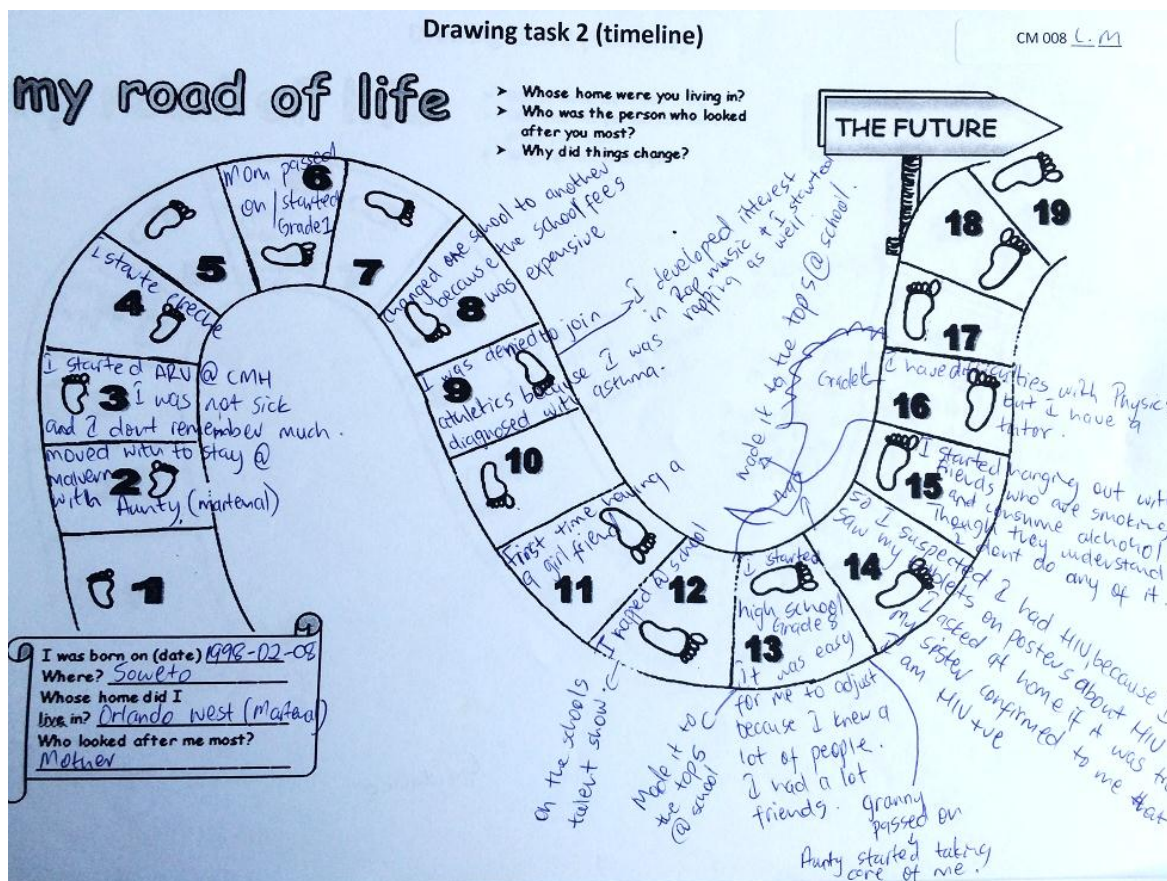 Drawing task 2 (timeline)
CM 008 L.M
my road of life
➤ Whose home were you living in?
➤ Who was the person who looked
after you most?
➤ Why did things change?
THE FUTURE
I was born on (date) 1998-02-08
Where? Soweto
Whose home did I
live in? Orlando West (Maternal)
Who looked after me most?
Mother
1
2
moved with to stay @
malvern
with Aunty, (marternal)
3
I started ARV @ CMH
I was not sick
and I dont remember much.
4
I starte creche
5
6
Mom passed
on / started
Grade 1
7
8
changed one school to another
because the school fees
was expensive
9
I was denied to join
athletics because I was
diagnosed with asthma.
I developed interest
in Rap music & I started
rapping as well
10
11
First time having a
girl friend
12
I raped @ school
on the schools
talent show.
13
I started
high school
Grade 8
It was easy
for me to adjust
because I knew a
lot of people.
I had a lot
friends.
Made it to
the top 5
@ school
14
So I suspected I had HIV, because I
saw my tablets on posters about HIV
I asked at home if it was
my sister confirmed to me that
am HIV +ve
granny
passed on
Aunty started taking
care of me.
made it to the top 5 @ school.
15
I started hanging out
friends who are smoking
and consume alchohol
Though they understand
I dont do any of it.
16
Grade 11
I have difficulties with Physic
but I have a
tutor.
17
18
19